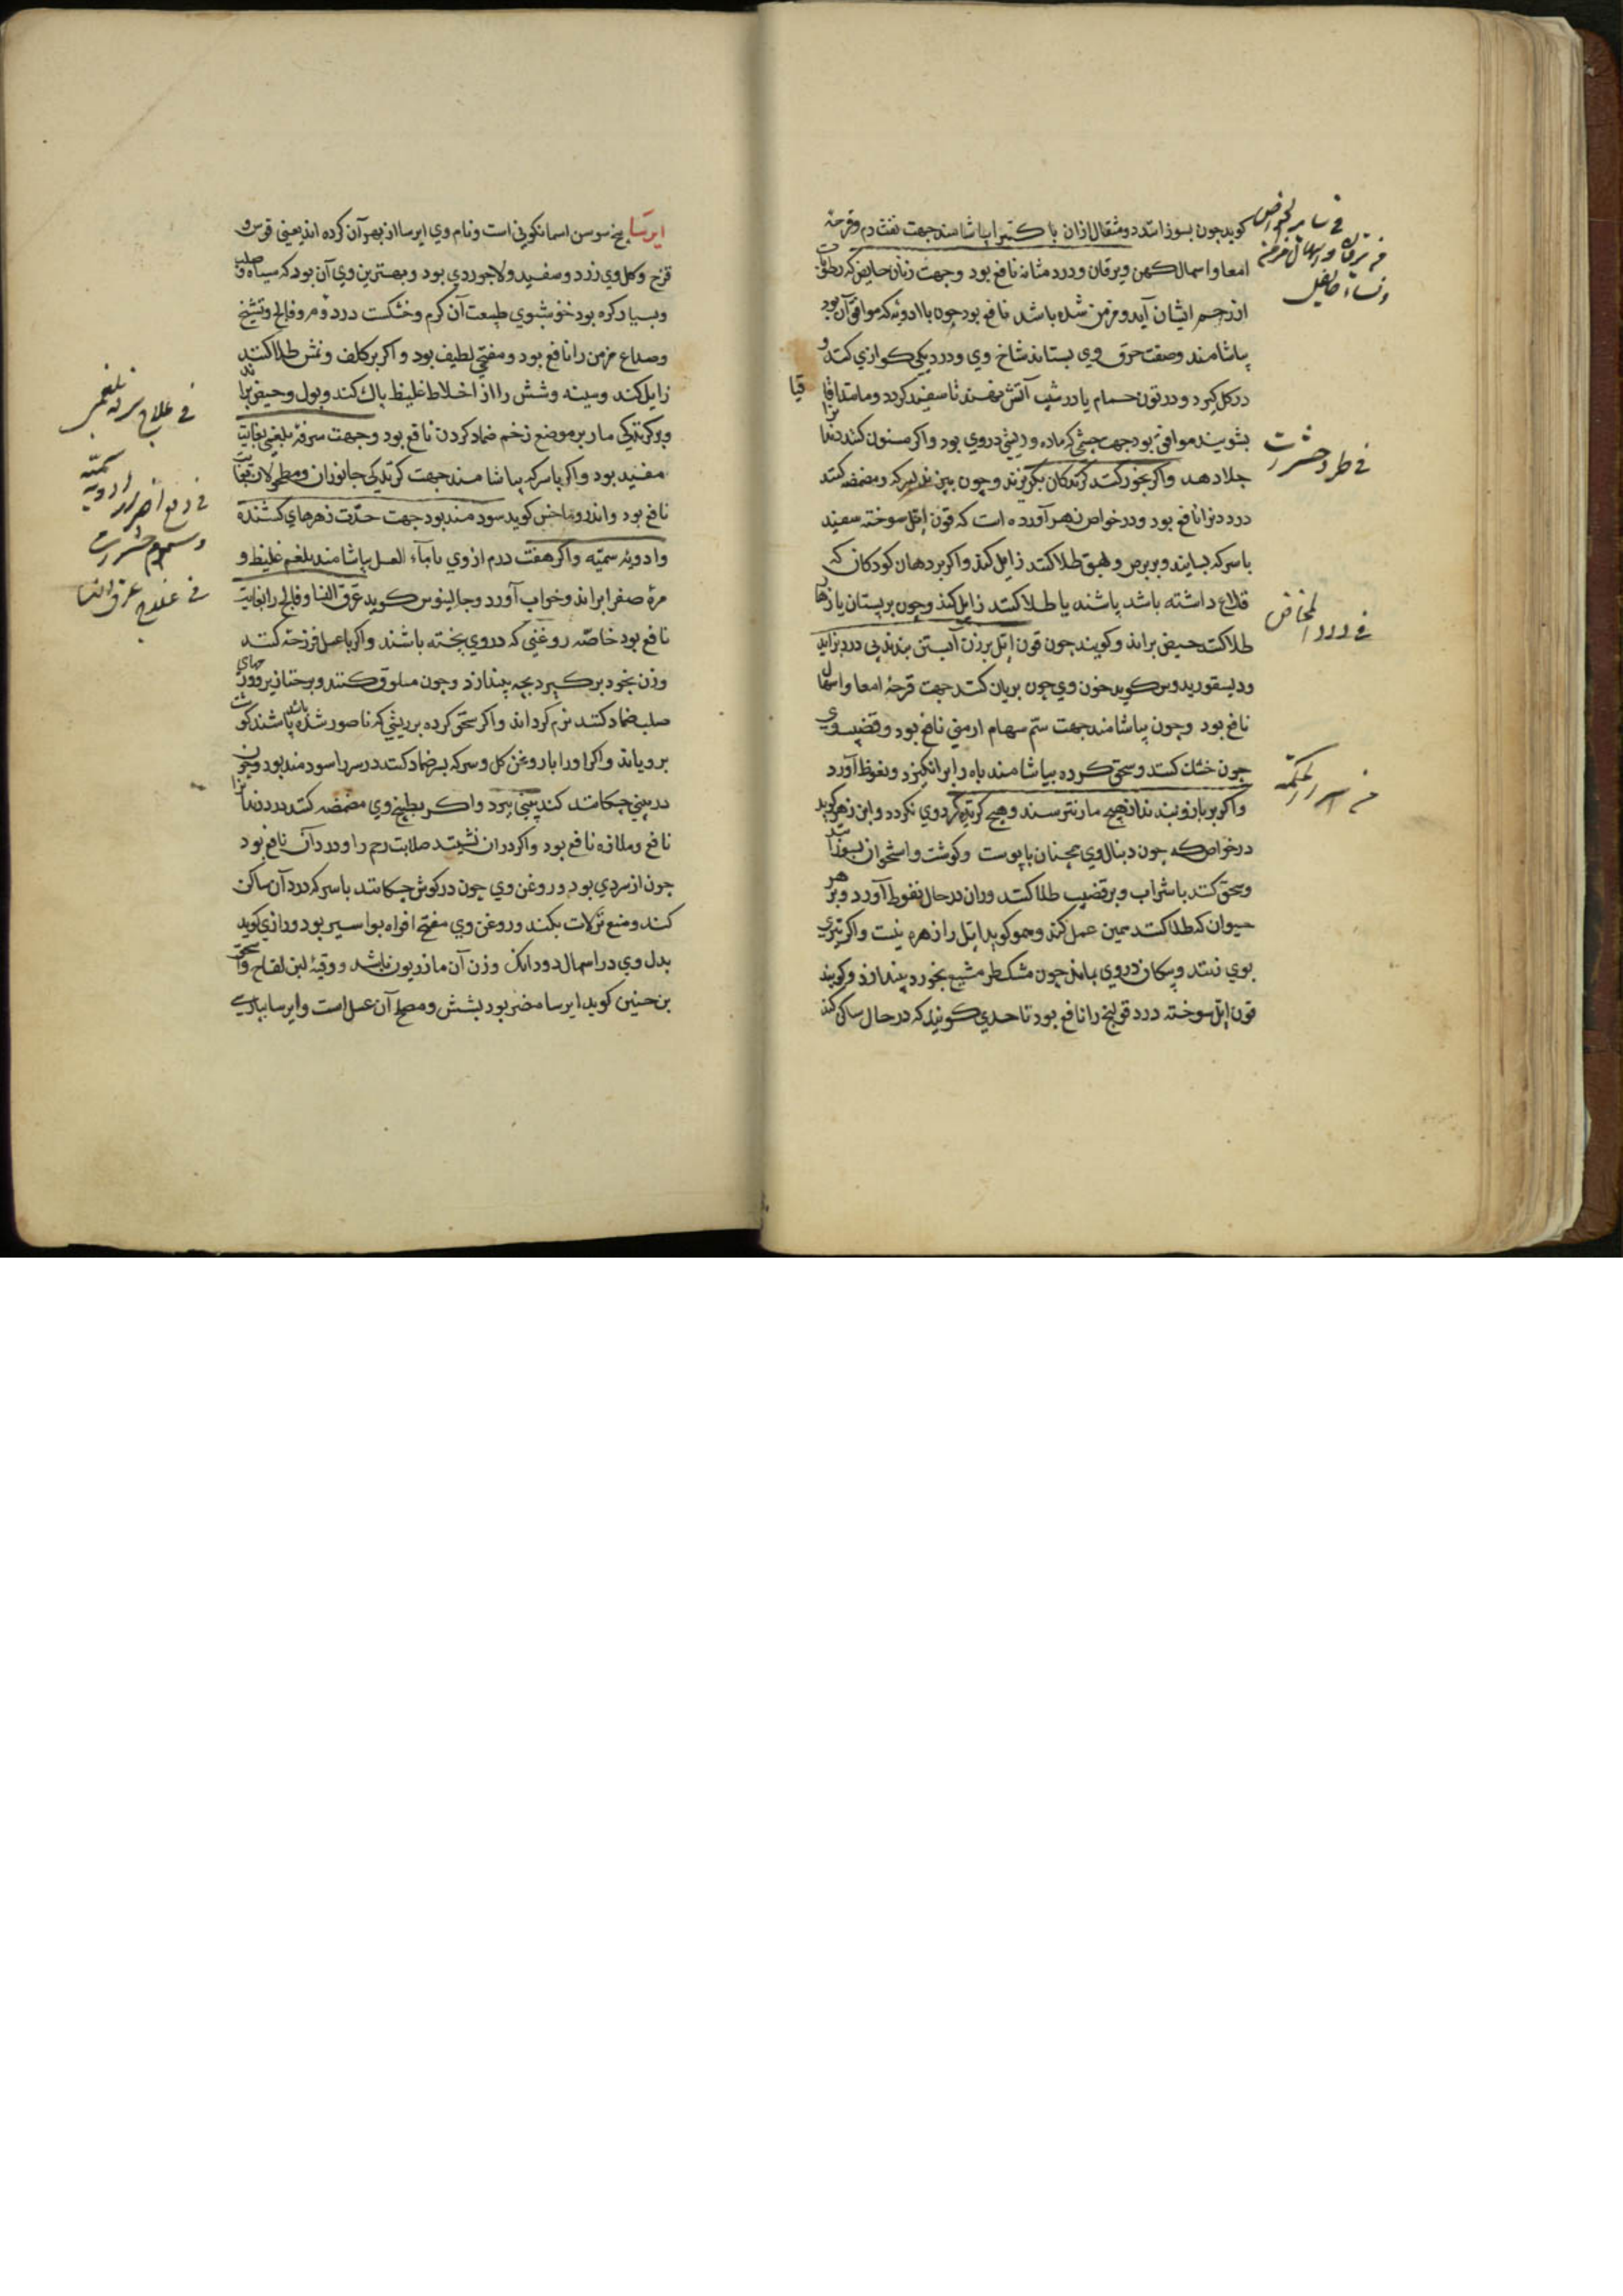 کوید چون بسوزانند دو مثقال ازان با کتیرا بیاشامند جهت نفث دم و قرحهٔ
امعا و اسهال کهن و یرقان و درد مثانه نافع بود و جهت زنان حایض که رطوبات
از رحم ایشان آید و مزمن شده باشد نافع بود چون با ادویهٔ که موافق آن بود
بیاشامند و صفت حرق وی بستاند شاخ وی و در دیکی کوازی کنند و
در کل کیرد و در تون حمام یا در شیب آتش نهند تا سفید کردد و مانند اقاقیا
بشویند موافق بود جهت چشمی که ماده و ریشی در وی بود و اکر مسنون کنند دندانرا
جلا دهد و اکر بخور کنند کزندکان بکریزند و چون بپزند بسرکه و مضمضه کنند
درد دنرا نافع بود و در خواص زهر آورده است که قرن ایل سوخته سفید
با سرکه بسایند و بر برص و بهق طلا کنند زایل کند و اکر بر دهان کودکان که
قلاع داشته باشد پاشند یا طلا کنند زایل کند و چون بر پستان یا زهار
طلا کنند حیض براند و کویند چون قرن ایل بر زن آبستن بندند بی درد بزاید
و دیسقوریدوس کوید خون وی چون بریان کنند جهت قرحهٔ امعا و اسهال
نافع بود و چون بیاشامند جهت سم سهام ارمنی نافع بود و قضیب وی
چون خشک کنند و سحق کرده بیاشامند باه را برانکیزد و نعوظ آورد
و اکر بر بازو بندند از هیچ مار نترسند و هیچ کزنده کرد وی نکردد و ابن زهر کوید
در خواص که چون دنبال وی همچنان با پوست و کوشت و استخوان بسوزانند
و سحق کنند با شراب و بر قضیب طلا کنند و ران در حال نعوظ آورد و بر هر
حیوان که طلا کنند همین عمل کند و هو کوید ایل را زهره نیست و اکر تیری
بوی زنند و پیکان در وی بماند چون مشکطرمشیع بخورد بیندازد و کویند
قرن ایل سوخته درد قولنج را نافع بود تا حدی کویند که در حال ساکن کند
فی طرد حشرات
فی درد المخاض
ایرسا بیخ سوسن اسمانکونی است و نام وی ایرسا از بهر آن کرده اند یعنی قوس و
قزح و کل وی زرد و سفید و لاجوردی بود و بهترین وی آن بود که سیاه و صلب
و بسیار کره بود خوشبوی طبیعت آن کرم و خشکست در دوم و فالج و تشنج
و صداع مزمن را نافع بود و مفتح لطیف بود و اکر بر کلف و نمش طلا کنند
زایل کند و سینه و شش را از اخلاط غلیظ پاک کند و بول و حیض براند
و بر کزندکی مار بر موضع زخم ضماد کردن نافع بود و جهت سرفهٔ بلغمی بغایت
مفید بود و اکر با سرکه بیاشامند جهت کزندکی جانوران و مطحولان بغایت
نافع بود و اندروماخس کوید سودمند بود جهت حدت زهرهای کشنده
و ادویهٔ سمیه و اکر هفت درم از وی با ماء العسل بیاشامند بلغم غلیظ و
مرهٔ صفرا براند و خواب آورد و جالینوس کوید عرق النسا و فالج را بغایت
نافع بود خاصه روغنی که در وی پخته باشند و اکر با عسل فرزجه کنند
وزن بخود برکیرد بچه بیندازد و چون مسلوق کنند و بر خنازیر و ورمهای
صلب ضماد کنند نرم کرداند و اکر سحق کرده بر ریشی که ناصور شده باشد پاشند کوشت
برویاند و اکر او را با روغن کل و سرکه بسر ضماد کنند درد سر را سودمند بود و چون
در بینی چکانند کند بینی ببرد و اکر بطبیخ وی مضمضه کنند درد دندانرا
نافع و ملازه نافع بود و اکر در ان نشینند صلابت رحم را و درد آن نافع بود
چون از سردی بود و روغن وی چون در کوش چکانند با سرکه درد آن ساکن
کند و منع نزلات بکند و روغن وی مفتح افواه بواسیر بود و رازی کوید
بدل وی در اسهال دو دانک وزن آن مازریون باشد و وقیهٔ لبن لقاح و اسحق
بن حنین کوید ایرسا مضر بود بشش و مصلح آن عسل است و ایرسا بپارسی
فی علاج سرفه بلغمی
فی دفع اضرار ادویه سمیّه
و سموم حشرات
فی علاج عرق النسا